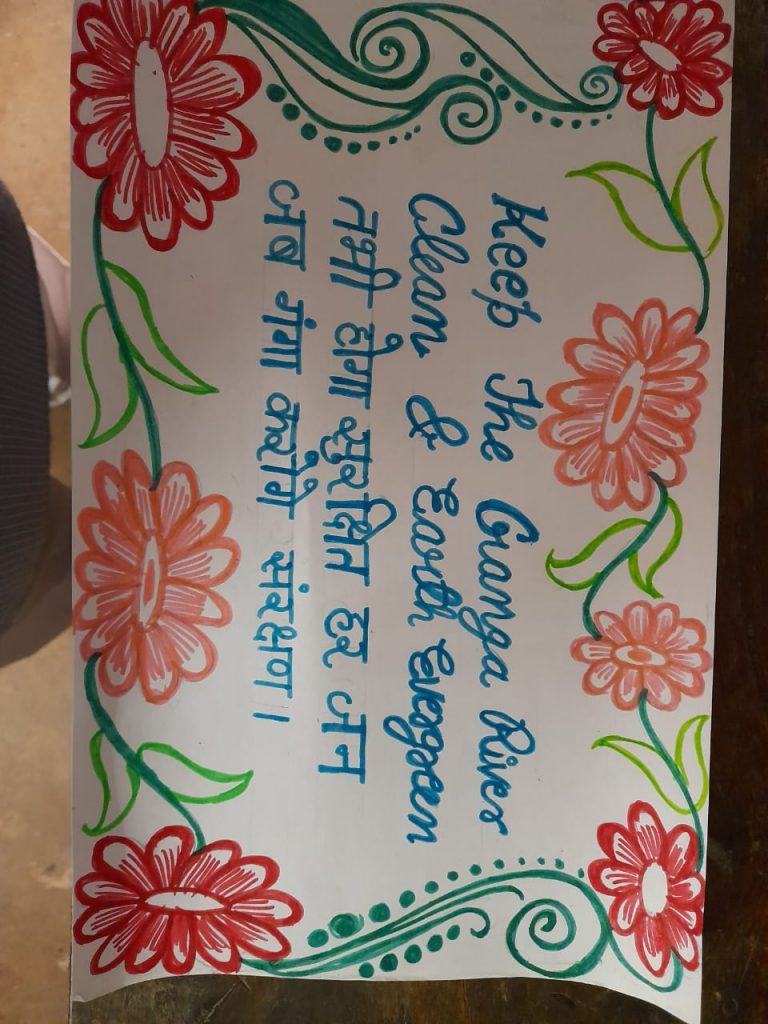 Keep The Ganga River
Clean & Earth Evergreen
तभी होगा सुरक्षित हर जन
जब गंगा करोगे संरक्षण।